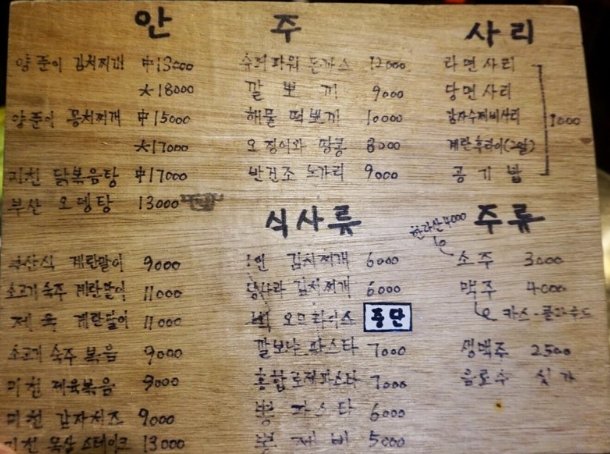 안주
양푼이 김치찌개 中13000
大18000
양푼이 꽁치찌개 中15000
大17000
미친 닭볶음탕 中17000
부산 오뎅탕 13000
부산식 계란말이 9000
소고기 숙주 계란말이 11000
제육 계란말이 11000
소고기 숙주 볶음 9000
미친 제육볶음 9000
미친 감자치즈 9000
미친 목살 스테이크 13000
슈퍼파워 돈까스 12000
깔뽀끼 9000
해물 떡뽀끼 10000
오징어와 땅콩 8000
반건조 노가리 9000
식사류
김치찌개 6000
김치찌개 6000
오므라이스 중단
깔보나 파스타 7000
홍합로제파스타 7000
뽕 파스타 6000
뽕 제비 5000
사리
라면사리
당면사리
감자수제비사리
계란후라이(2알)
공기밥
1000
주류
한라산 4000
소주 3000
맥주 4000
카스-클라우드
생맥주 2500
음료수 싯가